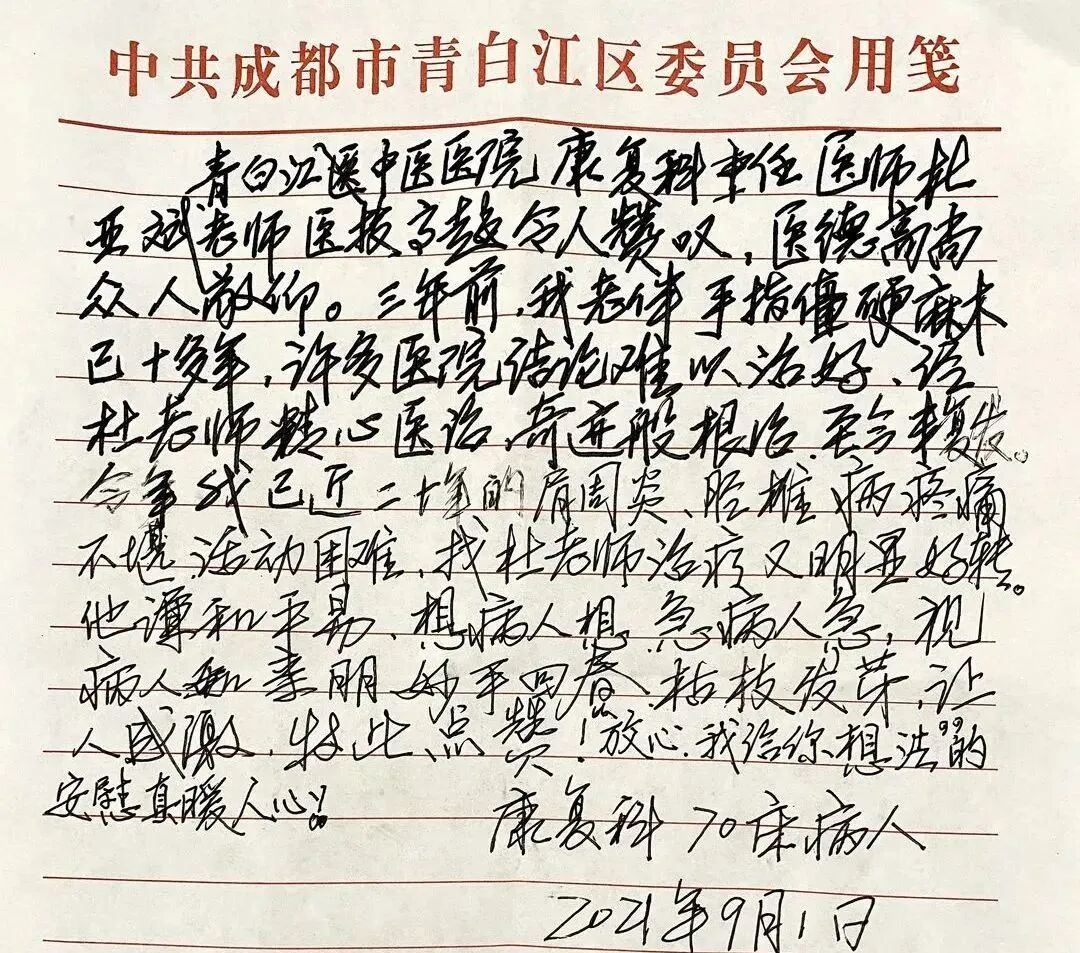 中共成都市青白江区委员会用笺
青白江区中医医院康复科主任医师杜
亚斌老师医技高超令人赞叹，医德高尚
众人敬仰。三年前，我老伴手指僵硬麻木
已十多年，许多医院结论难以治好，经
杜老师精心医治，奇迹般根治，至今未复发。
今年我已近二十年的肩周炎、腔椎病疼痛
不堪，活动困难，找杜老师治疗又明显好转。
他谭和平易，想病人想，急病人急，视
病人如亲朋，妙手回春，枯枝发芽，让
人感激，特此点赞！“放心，我给你想法”的
安慰真暖人心！
康复科 70床病人
2021年9月1日